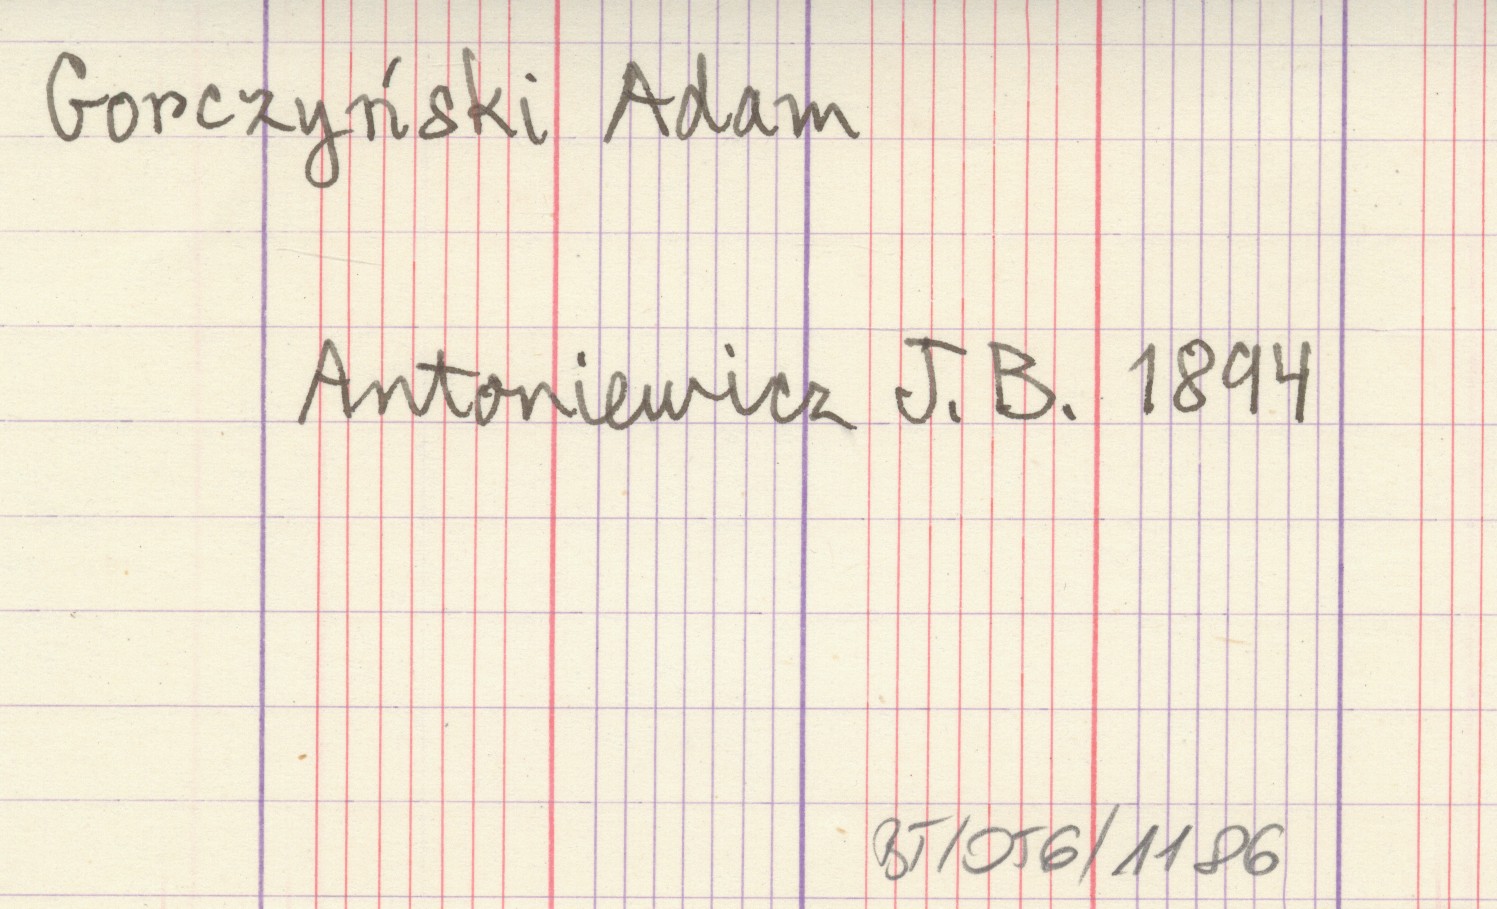 Gorczyński Adam
Antoniewicz J.B. 1894
BT/OT6/1186